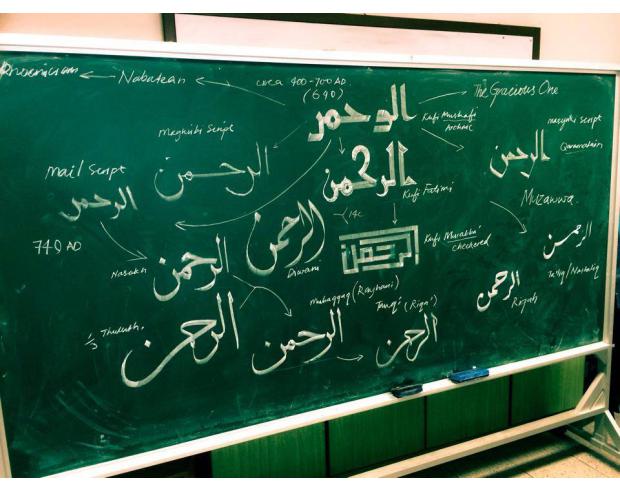 Phoenician ← Nabatean ← circa 400-700 AD
(690)
الرحمن
The Gracious One
Kufi Mushafi
Archaic
Maghribi Script
الرحمن
الرحمن
Kufi Fatimi
الرحمن
Mail Script
الرحمن
740 AD
الرحمن
Nasakh
الرحمن
Diwani
14c
الرحمن
Kufi Murabba'
checkered
Muzawwa
الرحمن
Ta'liq/Nastaliq
الرحمن
Riqah
1/3 Thuluth
الرحمن
Muhaqqaq (Rayhani)
الرحمن
Tauqi' (Riqa')
الرحمن